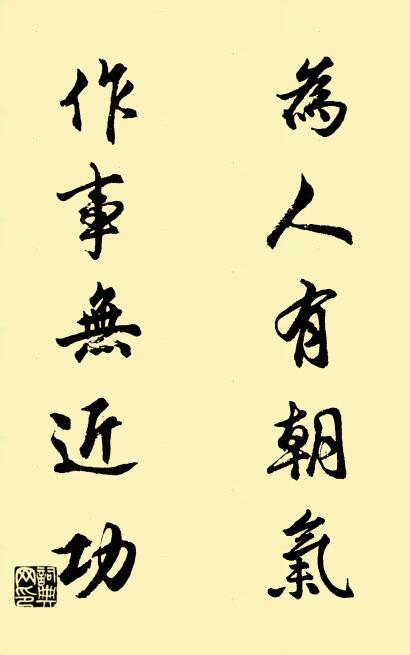 為人有朝氣
作事無近功
詞典网印